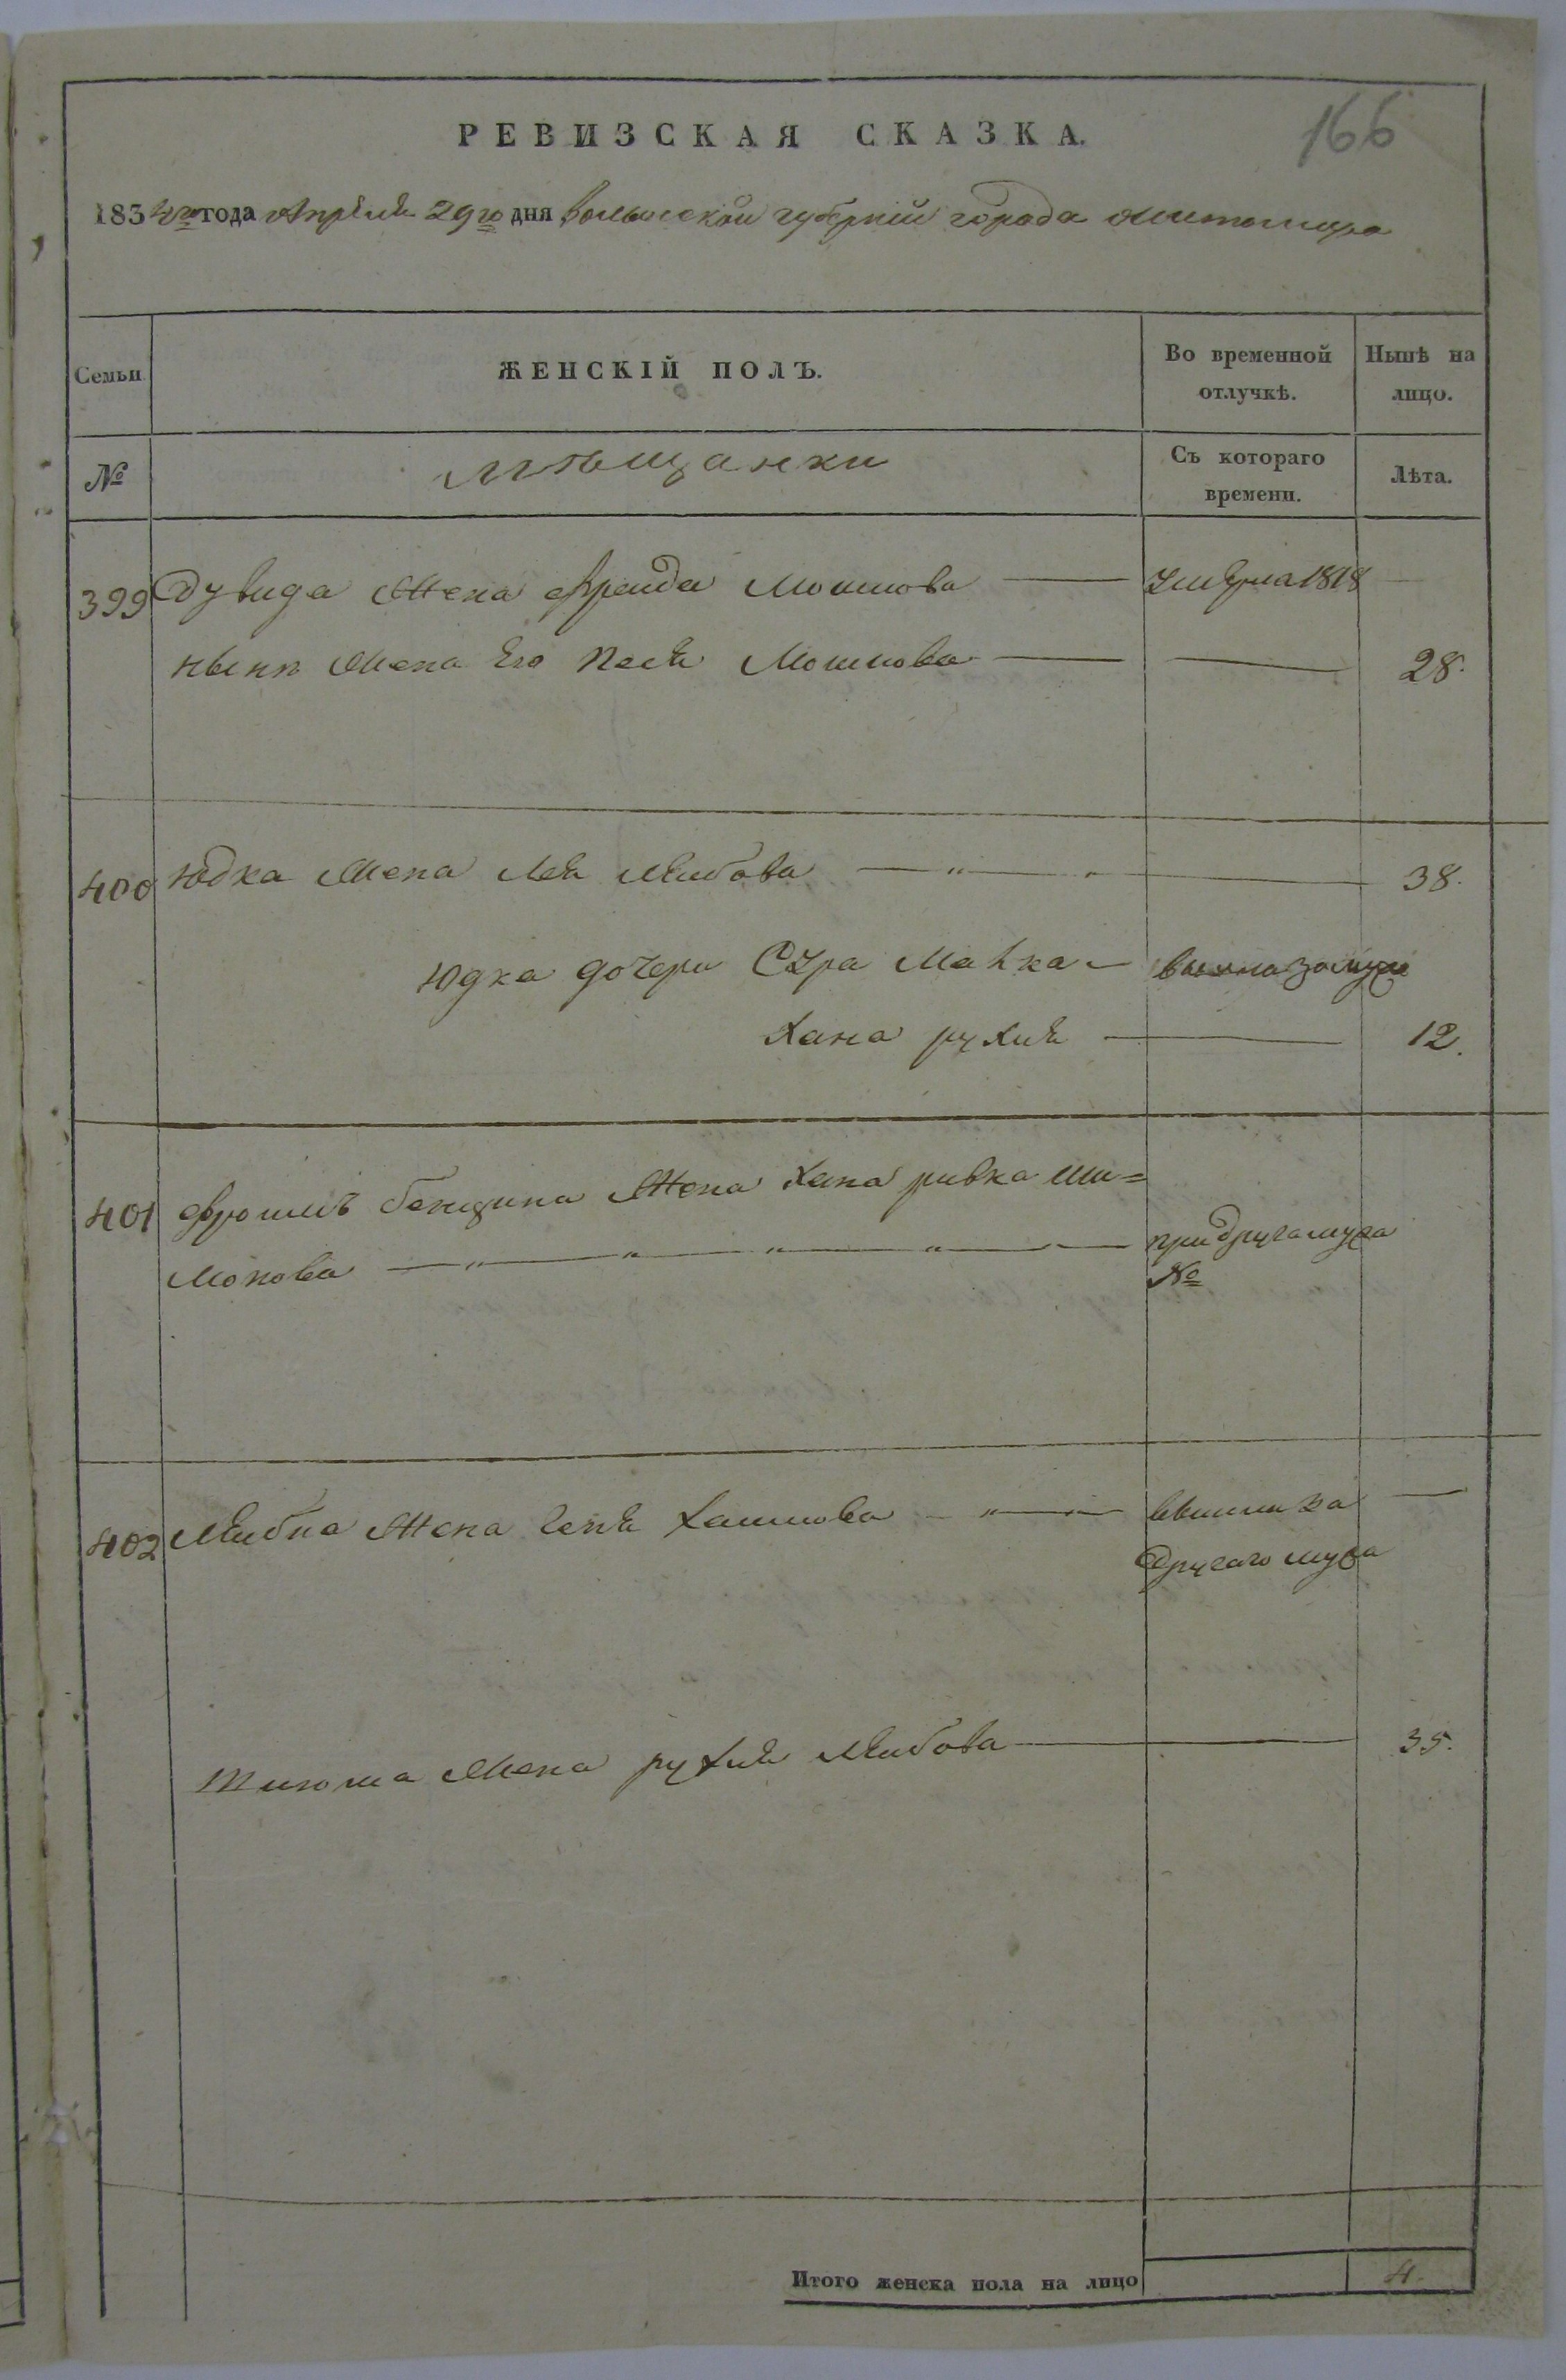 166
РЕВИЗСКАЯ СКАЗКА.
1834го года Апреля 29го дня Волынской губернии города Житомира
Семьи
ЖЕНСКІЙ ПОЛЪ.
Во временной отлучкѣ.
Нынѣ на лицо.
№
мѣщанки
Съ котораго времени.
Лѣта.
399 Дувида Жена Фрейда Мошкова — умерла 1818 —
ныне Жена Его Песя Мошкова — — 28.
400 Юдка Жена Лея Лейбова — 38.
Юдка дочери Сура Малка — вышла замуж
Хана рухля — 12.
401 Фроимъ Жена Хана ривка Ши=
монова — при друга мужа
№
402 Лейбы Жена Хаимова — вышла за —
другаго мужа
Жена рухля Лейбова — 35.
Итого женска пола на лицо 4.